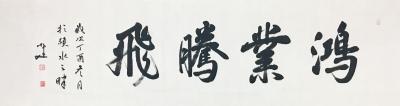 鴻業騰飛
歲次丁酉冬月
於穎水之畔